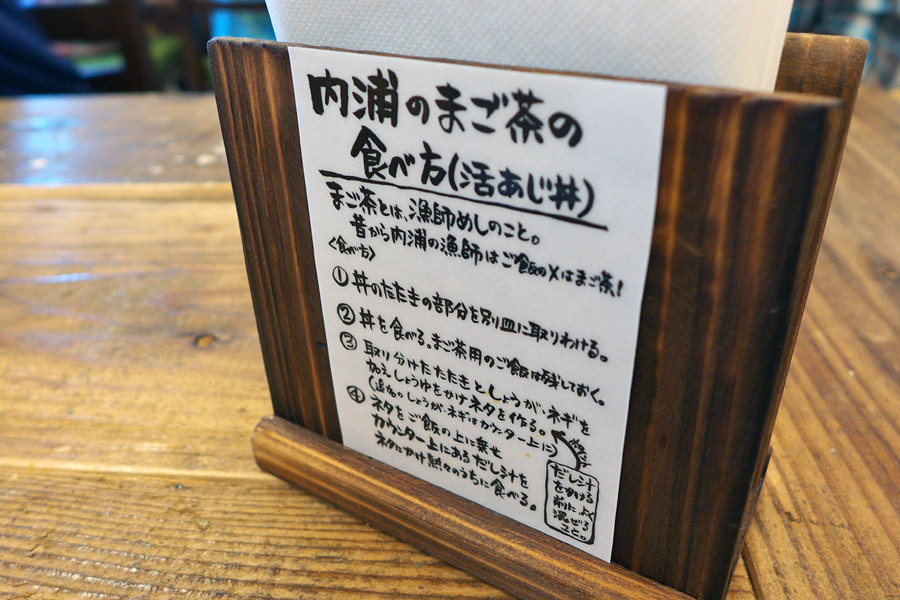 内浦のまご茶の
食べ方(活あじ丼)
まご茶とは、漁師めしのこと。
昔から内浦の漁師はご飯の〆はまご茶!
<食べ方>
① 丼のたたきの部分を別皿に取りわける。
② 丼を食べる。まご茶用のご飯は残しておく。
③ 取り分けたたたきとしょうが、ネギを
加えしょうゆをかけネタを作る。
(追加のしょうが、ネギはカウンター上に)
④ ネタをご飯の上に乗せ
カウンター上にあるだし汁を
ネタにかけ熱々のうちに食べる。
だし汁
をかける
前によく
混ぜる
こと。